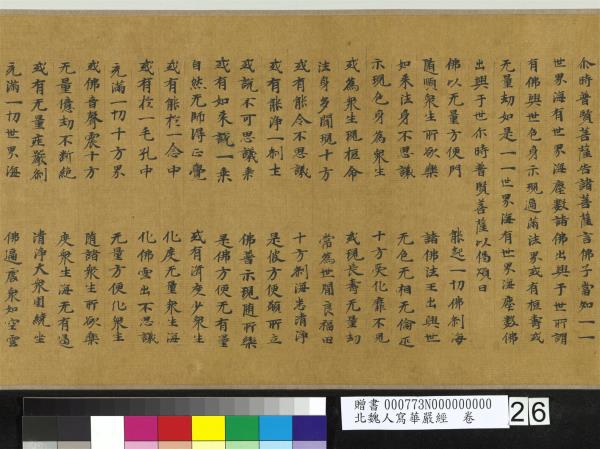 尒時普賢菩薩告諸菩薩言佛子當知一一
世界海有世界海塵數諸佛出興于世所謂
有佛興世色身示現遍滿法界或有短壽或
无量劫如是一一世界海有世界海塵數佛
出興于世尒時普賢菩薩以偈頌曰
佛以无量方便門 能起一切佛刹海
随順衆生所欲樂 諸佛法王出興世
如來法身不思議 无色无相无倫匹
示現色身為衆生 十方受化靡不見
或為衆生現短命 或現長壽无量劫
法身多門現十方 常為世間良福田
或有能令不思議 十方刹海悉清淨
或有能淨一刹土 是彼方便願所立
或說不可思議乗 佛普示現随所樂
或有如来說一乗 是佛方便无有量
自然无師得正覺 或有濟度少衆生
或有能於一念中 化度无量衆生海
或有於一毛孔中 化佛雲出不思議
充滿一切十方界 无量方便化衆生
或佛音聲震十方 随諸衆生所欲樂
无量億劫不斷絶 度衆生海无有邊
或有无量莊嚴刹 清淨大衆圍繞坐
充滿一切世界海 佛遍衆如空雲
贈書 000773N000000000
北魏人寫華嚴經 卷
26